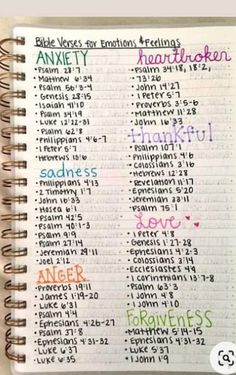 Bible Verses for Emotions & Feelings
ANXIETY
• Psalm 28:7
• Matthew 6:34
• Psalm 56:3-4
• Genesis 28:15
• Isaiah 41:10
• Psalm 34:19
• Luke 12:22-31
• Psalm 62:8
• Philippians 4:6-7
• 1 Peter 5:7
• Hebrews 13:6
sadness
• Philippians 4:13
• 2 Timothy 1:7
• John 16:33
• Hosea 6:1
• Psalm 42:5
• Psalm 40:1-3
• Psalm 9:9
• Psalm 27:14
• Jeremiah 29:11
• Joel 2:12
ANGER
• Proverbs 19:11
• James 1:19-20
• Luke 6:31
• Psalm 4:4
• Ephesians 4:26-27
• Psalm 37:8
• Ephesians 4:31-32
• Luke 6:37
• Luke 6:35
heartbroken
• Psalm 34:18, 18:2,
• 73:26
• John 14:27
• 1 Peter 5:7
• Proverbs 3:5-6
• Matthew 11:28
• John 16:33
thankful
• Psalm 107:1
• Philippians 4:6
• Colossians 3:16
• Hebrews 12:28
• Revelation 11:17
• Ephesians 5:20
• Jeremiah 33:11
• Psalm 95:1
Love
• 1 Peter 4:8
• Genesis 1:27-28
• Ephesians 4:2-3
• Colossians 3:14
• Ecclesiastes 4:9
• 1 Corinthians 13:7-8
• Psalm 63:3
• 1 John 4:8
• 1 John 4:10
FORGIVENESS
• Matthew 5:14-15
• Ephesians 4:31-32
• Luke 5:37
• 1 John 1:9